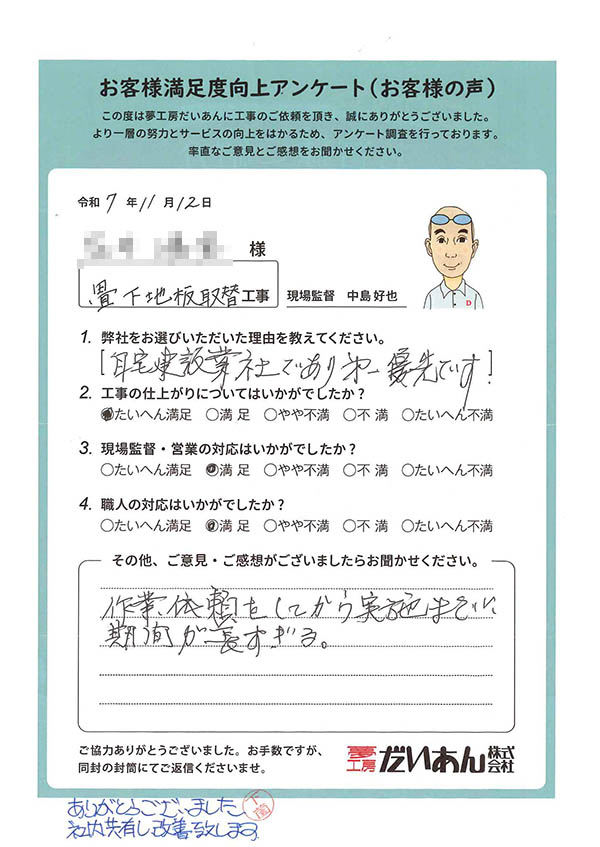 お客様満足度向上アンケート（お客様の声）
この度は夢工房だいあんに工事のご依頼を頂き、誠にありがとうございました。
より一層の努力とサービスの向上をはかるため、アンケート調査を行っております。
率直なご意見とご感想をお聞かせください。
令和 7 年 11 月 12 日
様
畳下地板取替 工事 現場監督 中島 好也
D
1. 弊社をお選びいただいた理由を教えてください。
[自宅建設業社であり第一優先です]
2. 工事の仕上がりについてはいかがでしたか？
●たいへん満足 ○満 足 ○やや不満 ○不 満 ○たいへん不満
3. 現場監督・営業の対応はいかがでしたか？
○たいへん満足 ●満 足 ○やや不満 ○不 満 ○たいへん不満
4. 職人の対応はいかがでしたか？
○たいへん満足 ●満 足 ○やや不満 ○不 満 ○たいへん不満
その他、ご意見・ご感想がございましたらお聞かせください。
作業依頼をしてから実施までに
期間が長すぎる。
ご協力ありがとうございました。お手数ですが、
同封の封筒にてご返信くださいませ。
夢工房 だいあん 株式会社
ありがとうございました
社内共有し改善致します